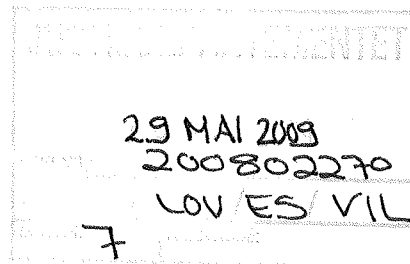 29 MAI 2009
200802270
LOV/ES/VIL
7